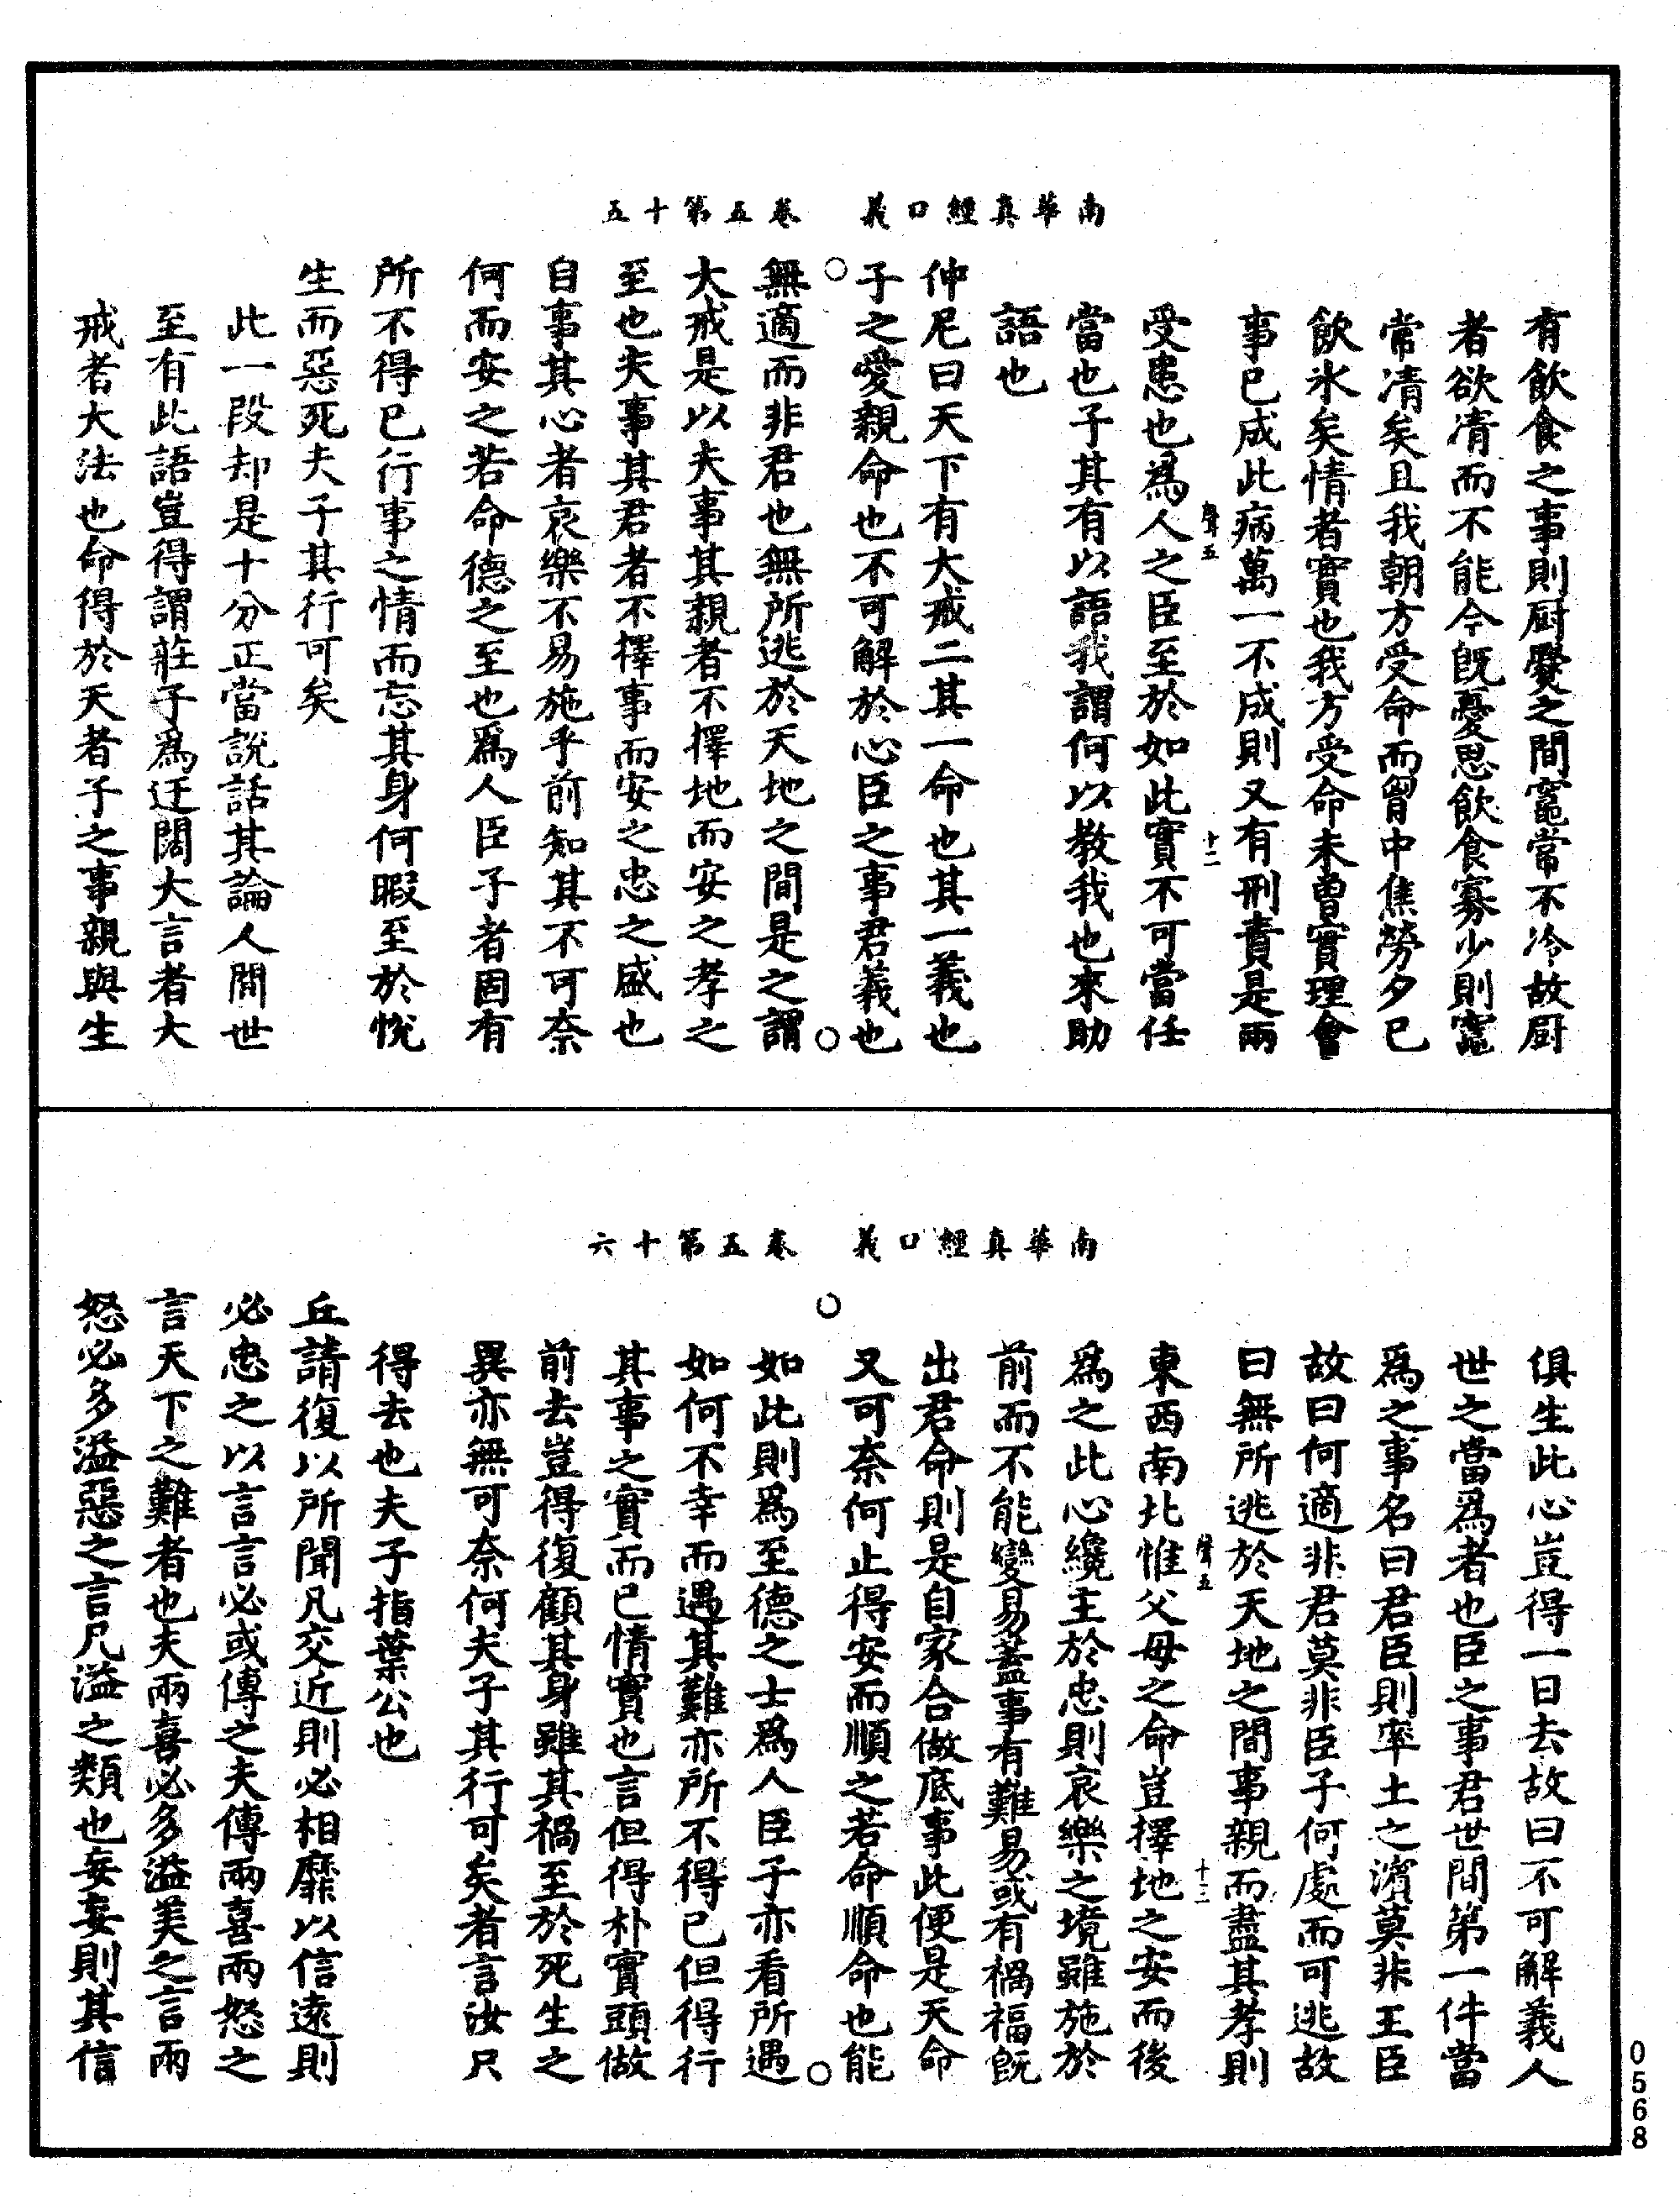 南華真經口義　卷五第十五
有飲食之事則厨爨之間竈常不冷故厨
者欲凊而不能今旣憂思飲食寡少則竈
常凊矣且我朝方受命而胷中焦勞夕已
飲氷矣情者實也我方受命未曾實理會
事已成此病萬一不成則又有刑責是兩
聲五　十二
受患也爲人之臣至於如此實不可當任
當也子其有以語我謂何以教我也來助
語也
仲尼曰天下有大戒二其一命也其一義也
子之愛親命也不可解於心臣之事君義也
無適而非君也無所逃於天地之間是之謂
大戒是以夫事其親者不擇地而安之孝之
至也夫事其君者不擇事而安之忠之盛也
自事其心者哀樂不易施乎前知其不可奈
何而安之若命德之至也爲人臣子者固有
所不得已行事之情而忘其身何暇至於悅
生而惡死夫子其行可矣
此一段却是十分正當說話其論人間世
至有此語豈得謂莊子爲迂闊大言者大
戒者大法也命得於天者子之事親與生
南華真經口義　卷五第十六
俱生此心豈得一日去故曰不可解義人
世之當爲者也臣之事君世間第一件當
爲之事名曰君臣則率土之濱莫非王臣
故曰何適非君莫非臣子何處而可逃故
曰無所逃於天地之間事親而盡其孝則
聲五　十三
東西南北惟父母之命豈擇地之安而後
爲之此心纔主於忠則哀樂之境雖施於
前而不能變易蓋事有難易或有禍福旣
出君命則是自家合做底事此便是天命
又可奈何止得安而順之若命順命也能
如此則爲至德之士爲人臣子亦看所遇
如何不幸而遇其難亦所不得已但得行
其事之實而已情實也言但得朴實頭做
前去豈得復顧其身雖其禍至於死生之
異亦無可奈何夫子其行可矣者言汝只
得去也夫子指葉公也
丘請復以所聞凡交近則必相靡以信遠則
必忠之以言言必或傳之夫傳兩喜兩怒之
言天下之難者也夫兩喜必多溢美之言兩
怒必多溢惡之言凡溢之類也妄妄則其信
0568